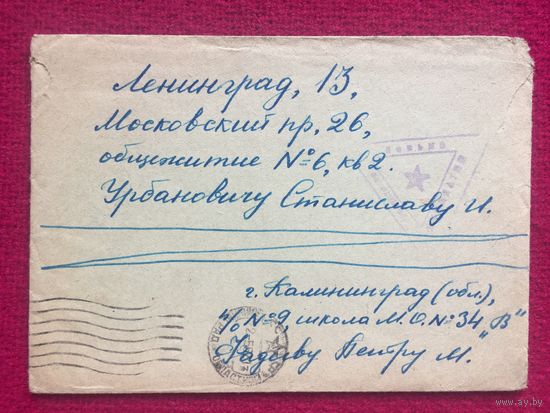 Ленинград, 13,
Московский пр, 26,
общежитие №6, кв 2.
Урбановичу Станиславу И.
г. Калининград (обл.),
п/о №9 школа М.О. №34 „В"
Петру М.
www.ay.by